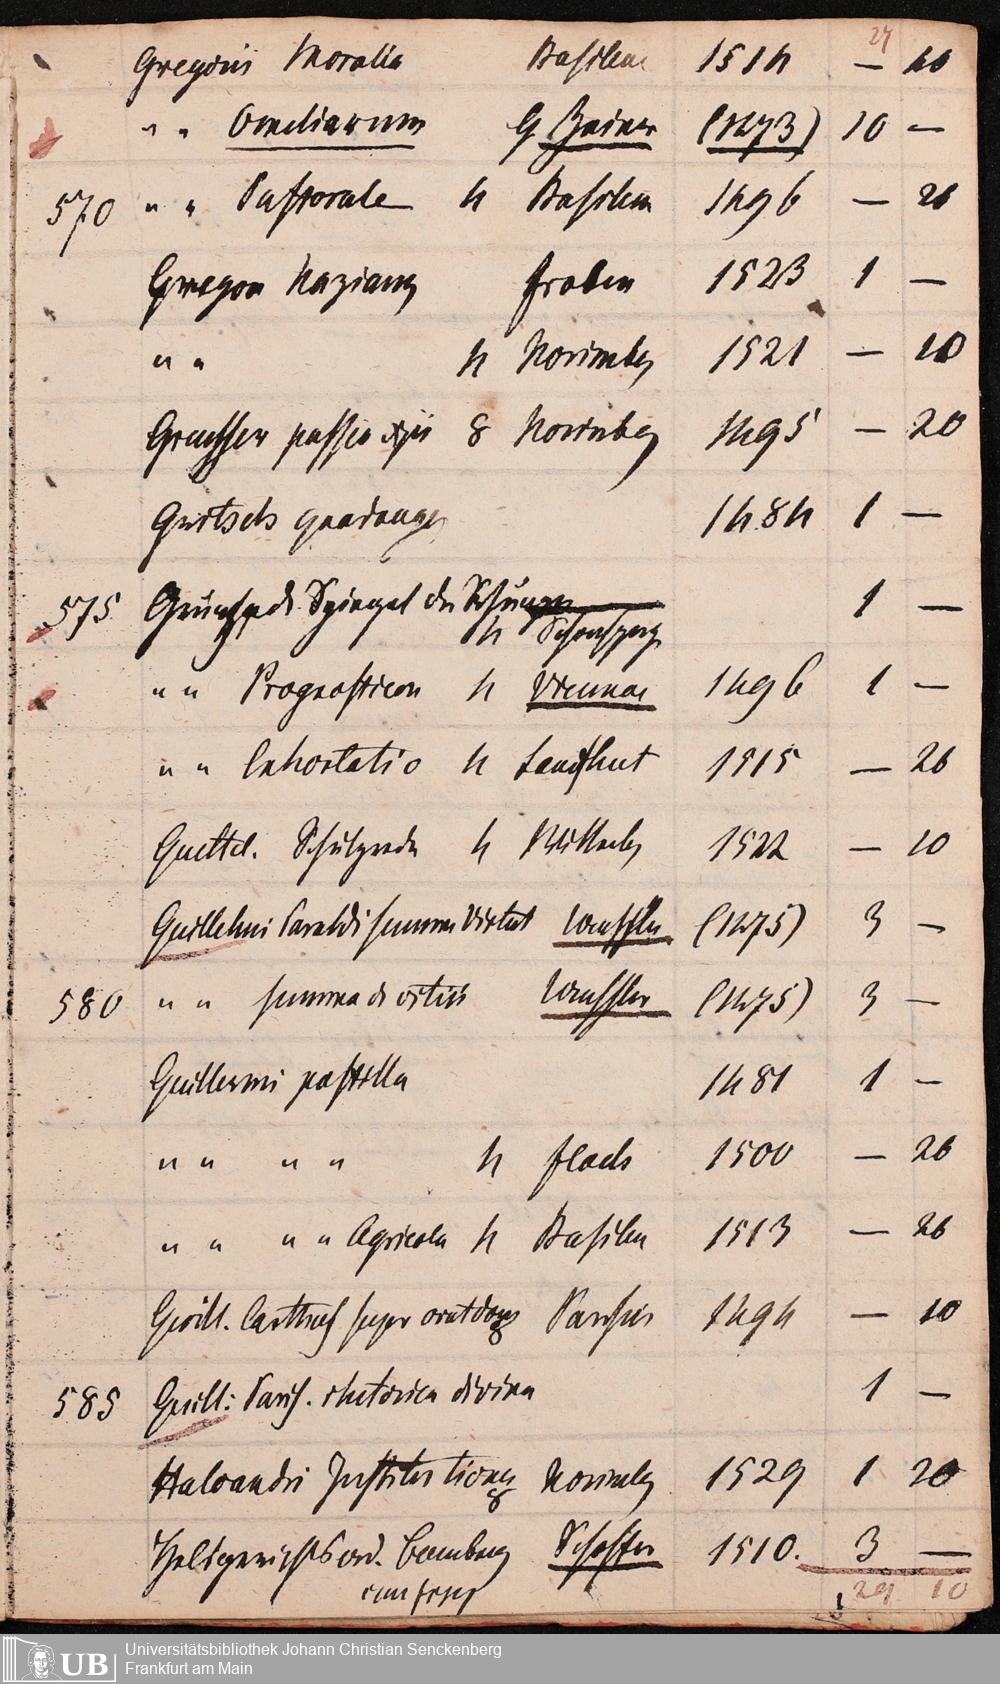 27
Gregorii Moralia Basileae 1514 — 20
" " Omeliarum G Zainer (1473) 10 —
570 " " Pastorale 4 Basileae 1496 — 26
Gregor Nazianz Froben 1523 1 —
" " 4 Norimbg 1521 — 10
passio 8 Norimbg 1495 — 20
Gritsch quadrag 1484 1 —
575 Grünpeck Spiegel der 1 —
4 Schonsperg
" " Prognosticon 4 Viennae 1496 1 —
" " Exhortatio 4 Landshut 1515 — 26
Guettel. Schutzrede 4 Wittenbg 1522 — 10
Guillelmi Paraldi summa virtut (1475) 3 —
580 " " summa de vitiis (1475) 3 —
Guillermi postilla 1481 1 —
" " " " 4 Flach 1500 — 26
" " " " Agricola 4 Basilea 1513 — 26
Guill. Carthus super orat dom 8 Parisiis 1494 — 10
585 Guill: Paris. rhetorica divina 1 —
Haloandri Institutiones 8 Norimbg 1529 1 20
Halsgerichts ord. Bamberg Schoffer 1510. 3 —
29 10
UB Universitätsbibliothek Johann Christian Senckenberg
Frankfurt am Main